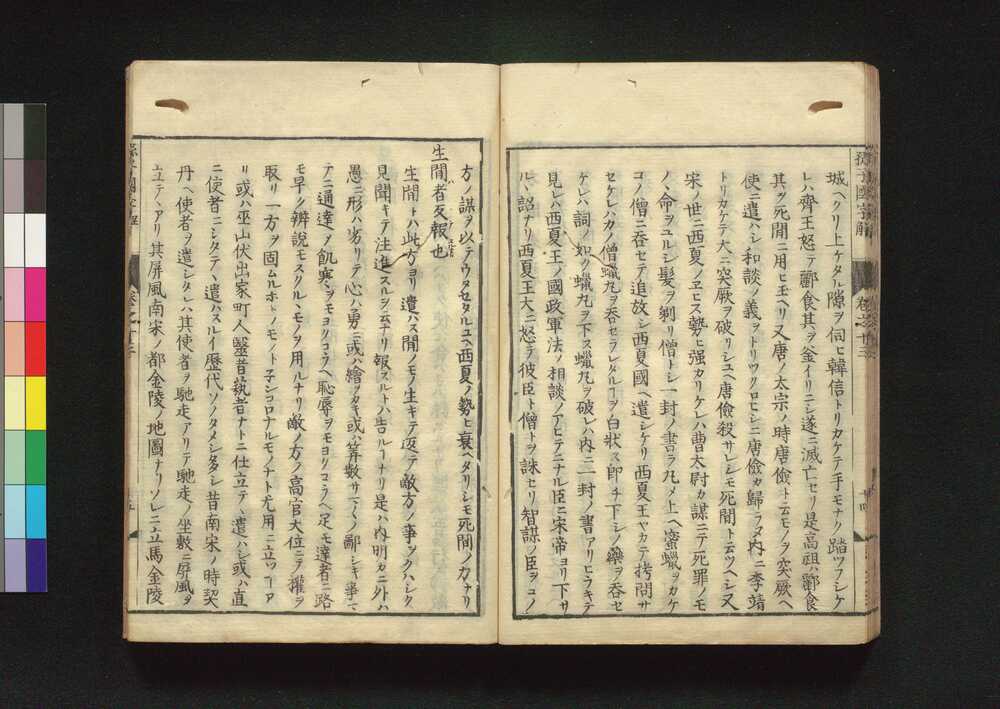 孫子國字解
卷之十三
城ヘクリ上ケタル隙ヲ伺ヒ韓信トリカケテ手モナク踏ツフシケ
レハ齊王怒テ酈食其ヲ釜イリニシ遂ニ滅亡セリ是高祖ハ酈食
其ヲ死間ニ用ヒ玉ヘリ又唐ノ太宗ノ時唐儉ト云モノヲ突厥ヘ
使ニ遣ハシ和談ノ義ヲトリツクロヒシニ唐儉カ歸ラヌ内ニ李靖
トリカケテ大ニ突厥ヲ破リシユヘ唐儉殺サレシモ死間ト云ツヘシ又
宋ノ世ニ西夏ノヱヒス勢ヒ强カリケレハ曹太尉カ謀ニテ死罪ノモ
ノヽ命ヲユルシ髮ヲ剃リ僧トシ一封ノ書ヲ丸メ上ヘ蜜蠟ヲカケ
コノ僧ニ呑セテ追放シ西夏國ヘ遣シケリ西夏王ヤカテ拷問サ
セケレハカノ僧蠟丸ヲ呑セラレタルヿヲ白狀ス卽チ下シノ藥ヲ呑セ
ケレハ詞ノ如ク蠟丸ヲ下ス蠟丸ヲ破レハ内ニ一封ノ書アリヒラキテ
見レハ西夏王ノ國政軍法ノ相談ノアヒテニナル臣ニ宋帝ヨリ下サ
ルヽ詔ナリ西夏王大ニ怒テ彼臣ト僧トヲ誅セリ智謀ノ臣ヲコノ
方ノ謀ヲ以テウタセタルユヘ西夏ノ勢ヒ衰ヘタリシモ死間ノ力ナリ
生間者反報也
生間トハ此方ヨリ遣ハス間ノモノ生キテ返テ敵方ノ事ヲクハシク
見聞キテ注進スルヲ云ナリ報スルトハ吿ルヿナリ是ハ内明カニ外ハ
愚ニ形ハ劣リテ心ハ勇ニ或ハ繪ヲカキ或ハ算數サマ〱ノ鄙シキ事マ
テニ通達シ飢寒ヲモヨクコラヘ恥辱ヲモヨクコラヘ足モ達者ニ路
モ早ク辨說モスクルヽモノヲ用ルナリ敵ノ方ノ高官大位ニテ權ヲ
取リ一方ヲ固ムルホトノモノト子ンコロナルモノナト尤用ニ立ツヿア
リ或ハ巫山伏出家町人醫者藝者ナトニ仕立テヽ遣ハシ或ハ直
ニ使者ニシタテヽ遣ハスルイ歷代ソノタメシ多シ昔南宋ノ時契
丹ヘ使者ヲ遣シタレハ其使者ヲ馳走アリテ馳走ノ坐敷ニ屏風ヲ
立テヽアリ其屏風南宋ノ都金陵ノ地圖ナリソレニ立馬金陵